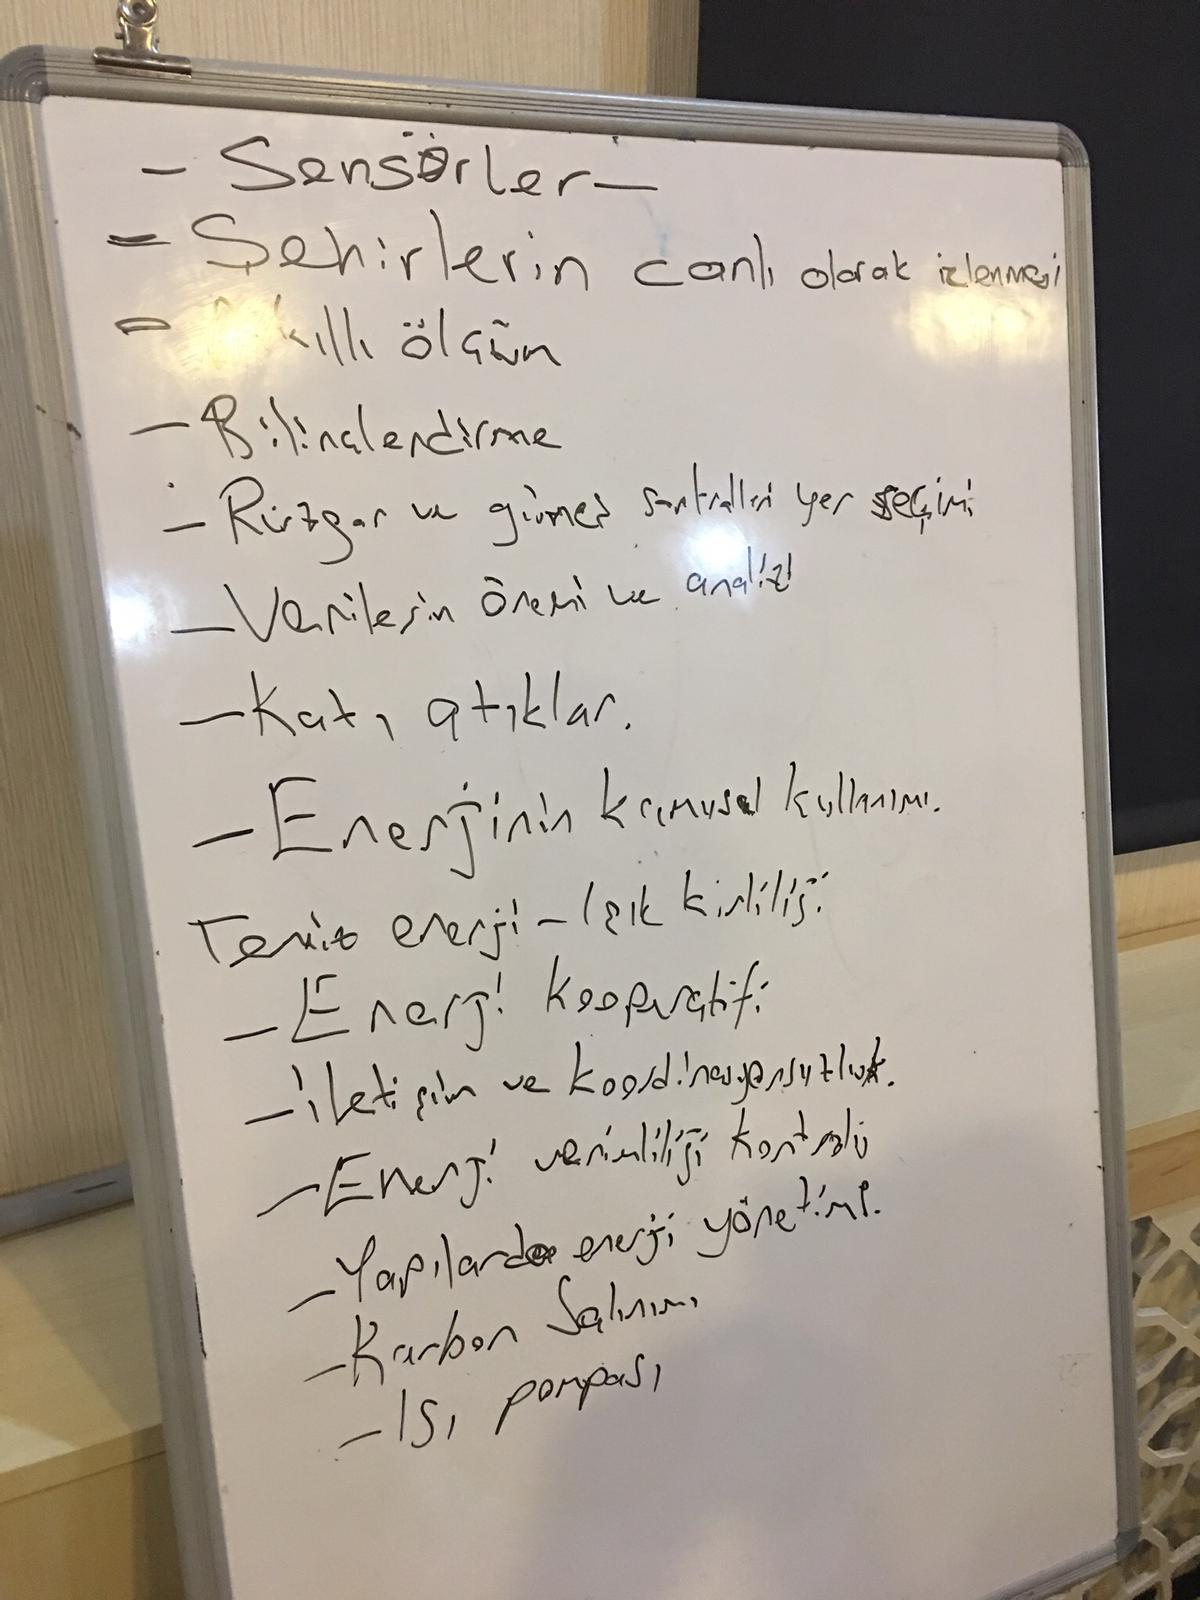 - Sensörler -
- Şehirlerin canlı olarak izlenmesi
- Akıllı ölçüm
- Bilinçlendirme
- Rüzgar ve güneş santralleri yer seçimi
- Verilerin önemi ve analizi
- Katı atıklar.
- Enerjinin kamusal kullanımı.
Temiz enerji - Işık kirliliği
- Enerji kooperatifi
- İletişim ve koordinasyonsuzluk.
- Enerji verimliliği kontrolü
- Yapılarda enerji yönetimi.
- Karbon Salınımı
- Isı pompası